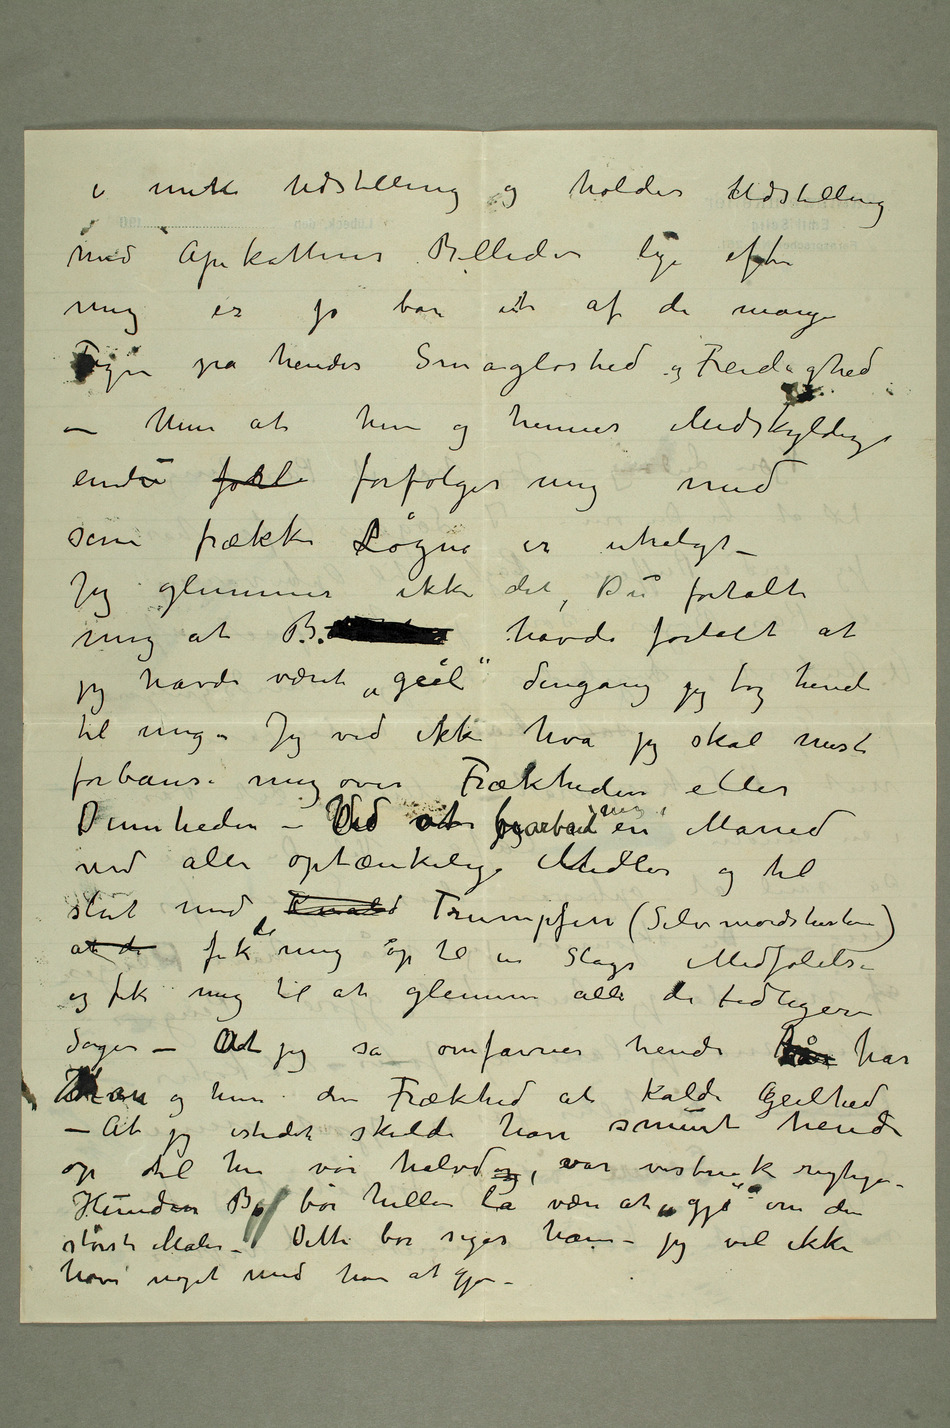 i mit Udstilling og holder Udstilling
med Apekattens Billeder lige efter
mig er jo bare et af de mange
Tegn på hendes Smagløshed og Freidighed
– Men at hun og hennes Medskyldige
endu forfølger mig med
sine frække Løgne er uheligt –
Jeg glemmer ikke det, Du fortalte
mig at B. havde fortalt at
jeg havde været „geil" dengang jeg tog hende
til mig – Jeg ved ikke hva jeg skal mest
forbause mig over Frækheden eller
Dumheden – Ved at bearbeide mig en Maned
med alle optænkelige Midler og til
slut med Trumpfen (Selvmordshistorien)
fik de mig op til en Slags Medfølelse
og fik mig til at glemme alle de tidligere
Sager – At jeg så omfavner hende har
Man og hun den Frækhed at kalde Geilhed
– At jeg istedet skulde have smurt hende
op til hun var halvdø, var vistnok rigtige –
Hunden B bør heller la være at „gjø" om den
største Maler – Dette bør siges ham – jeg vil ikke
have noget med ham at gjøre –